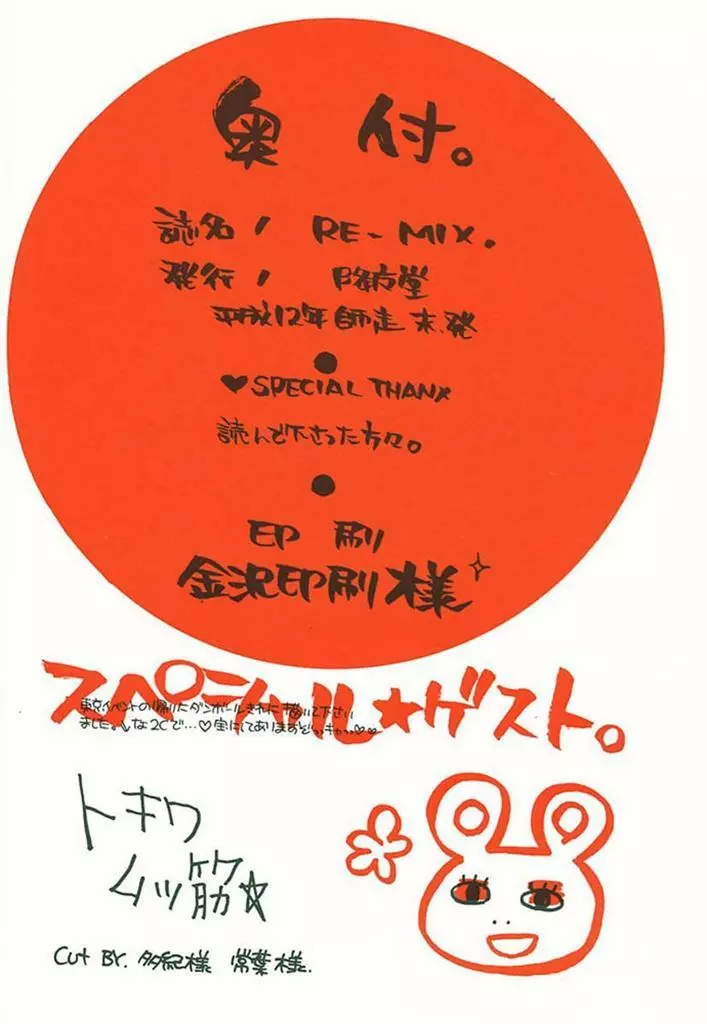 奥付。
誌名/ RE-MIX.
発行/
平成12年師走末、発
♥SPECIAL THANX
読んで下さった方々。
印刷
金沢印刷様
スペシャル★ゲスト。
東京イベントの帰りにダンボールきれに描いて下さい
ました。しな2Cで…♡宝にしてありますぞっ
トキワ
ムツ筋☆
Cut BY. 多紀様 常葉様.